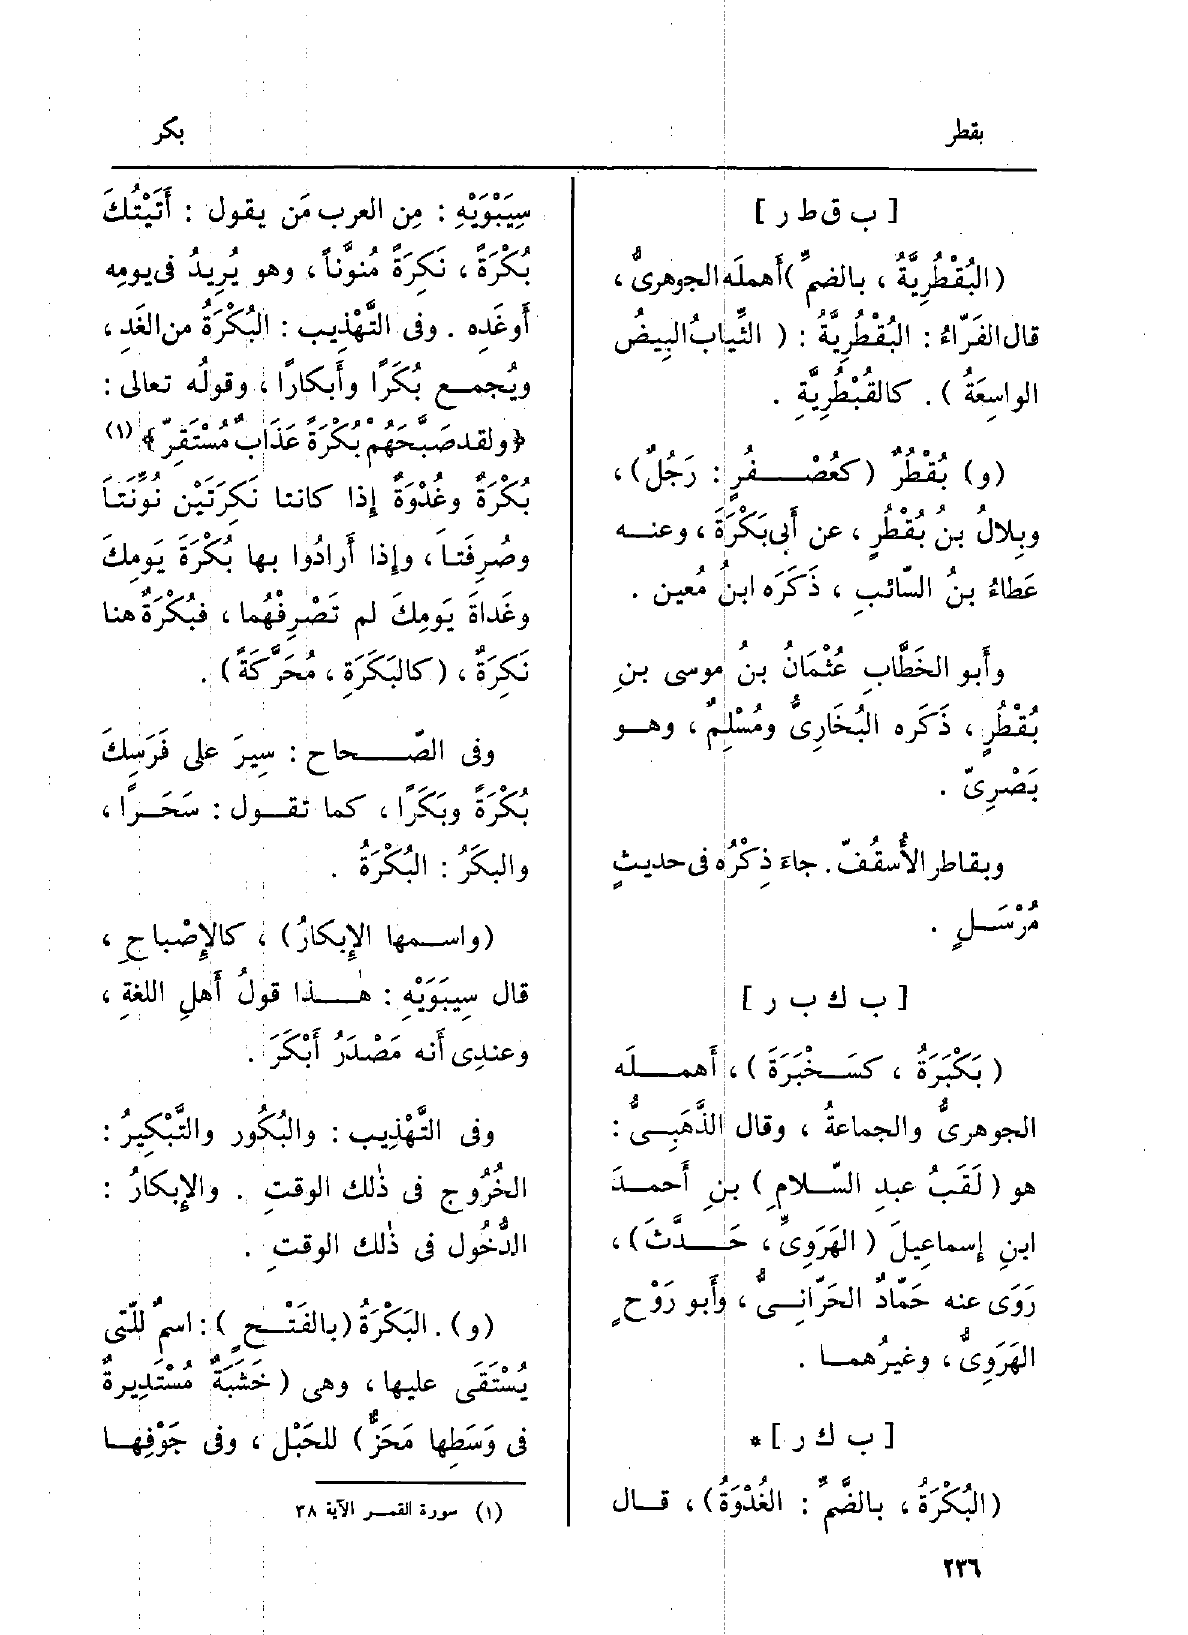 بقطر
بكر
[ ب ق ط ر ]
(البُقْطُرِيَّةُ ، بالضمّ) أَهملَه الجوهرىُّ ،
قال الفَرّاءُ : البُقْطُرِيَّةُ : ( الثِّيابُ البِيضُ
الواسِعَةُ ) . كالقُبْطُرِيَّةِ .
(و) بُقْطُرٌ (كعُصْـفُرٍ : رَجُلٌ) ،
وبِلالُ بنُ بُقْطُرٍ ، عن أَبى بَكْرَةَ ، وعنـه
عَطاءُ بنُ السّائبِ ، ذَكَرَه ابنُ مُعين .
وأَبو الخَطَّابِ عُثْمَانُ بنُ موسى بنِ
بُقْطُرٍ ، ذَكَرَه البُخَارِىُّ ومُسْلِمٌ ، وهـو
بَصْرِىّ .
وبقاطر الأُسقُفّ . جاءَ ذِكْرُه فى حديثٍ
مُرْسَـلٍ .
[ ب ك ب ر ]
( بَكْبَرَةُ ، كسَـخْبَرَةَ ) ، أَهمـلَه
الجوهرىُّ والجماعةُ ، وقال الذَّهَبِـىُّ :
هو ( لَقَبُ عبدِ السَّـلامِ ) بنِ أَحمـدَ
ابنِ إِسماعِيلَ ( الهَرَوِىِّ ، حَـدَّثَ ) ،
رَوَى عنه حَمّادٌ الحَرّانِـىُّ ، وأَبو رَوْحٍ
الهَرَوِىُّ ، وغيرُهمـا .
[ ب ك ر ] *
(البُكْرَةُ ، بالضَّمِّ : الغُدْوَةُ) ، قـال
سِيبَوَيْهِ : مِن العرب مَن يقول : أَتَيْتُكَ
بُكْرَةً ، نَكِرَةً مُنوَّناً ، وهو يُرِيدُ فى يومِه
أَو غَدِه . وفى التَّهْذِيب : البُكْرَةُ من الغَدِ ،
ويُجمـع بُكَرًا وأَبكارًا ، وقولُه تعالى :
﴿ولقد صَبَّحَهُمْ بُكْرَةً عَذَابٌ مُسْتَقِرّ﴾ (١)
بُكْرَةٌ وغُدْوَةٌ إِذا كانتا نَكِرَتَيْن نُوِّنَتَا
وصُرِفَتـا ، وإِذا أَرادُوا بها بُكْرَةَ يَومِكَ
وغَداةَ يَومِكَ لم تَصْرِفْهُما ، فبُكْرَةٌ هنا
نَكِرَةٌ ، (كالبَكَرَةِ ، مُحَرَّكَةً) .
وفى الصّـحاح : سِيرَ على فَرَسِكَ
بُكْرَةً وبَكَرًا ، كما تقـول : سَحَـرًا ،
والبكَرُ : البُكْرَةُ .
(واسـمها الإِبكارُ) ، كالإِصْباحِ ،
قال سِيبَوَيْهِ : هٰـذا قولُ أَهلِ اللغةِ ،
وعندِى أَنه مَصْدَرُ أَبْكَرَ .
وفى التَّهْذِيب : والبُكُور والتَّبْكِيرُ :
الخُرُوج فى ذٰلك الوقتِ . والإِبكارُ :
الدُّخُول فى ذٰلك الوقتِ .
(و) . البَكْرَةُ (بالفَتْـحِ) : اسمٌ لِلَّتى
يُسْتَقَى عليها ، وهى (خَشَبَةٌ مُسْتَدِيرةٌ
فى وَسَطِها مَحَزٌّ) للحَبْل ، وفى جَوْفِهـا
(١) سورة القمـر الآية ٣٨
٢٣٦